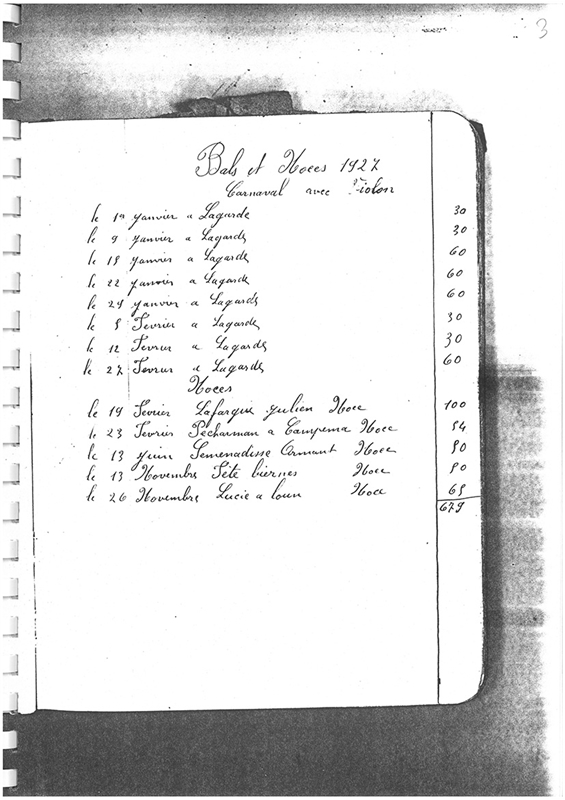 3
Bals et Noces 1927
Carnaval avec Violon
le 1er janvier a Lagarde 30
le 9 janvier a Lagarde 30
le 15 janvier a Lagarde 60
le 22 janvier a Lagarde 60
le 29 janvier a Lagarde 60
le 5 Fevrier a Lagarde 30
le 12 Fevrier a Lagarde 30
le 27 Fevrier a Lagarde 60
Noces
le 19 Fevrier Lafargue julien Noce 100
le 23 Fevrier Pecharman a Campema Noce 54
le 13 juin Semenadisse Ormant Noce 50
le 13 Novembre Fété biernes Noce 50
le 26 Novembre Lucie a loun Noce 65
679